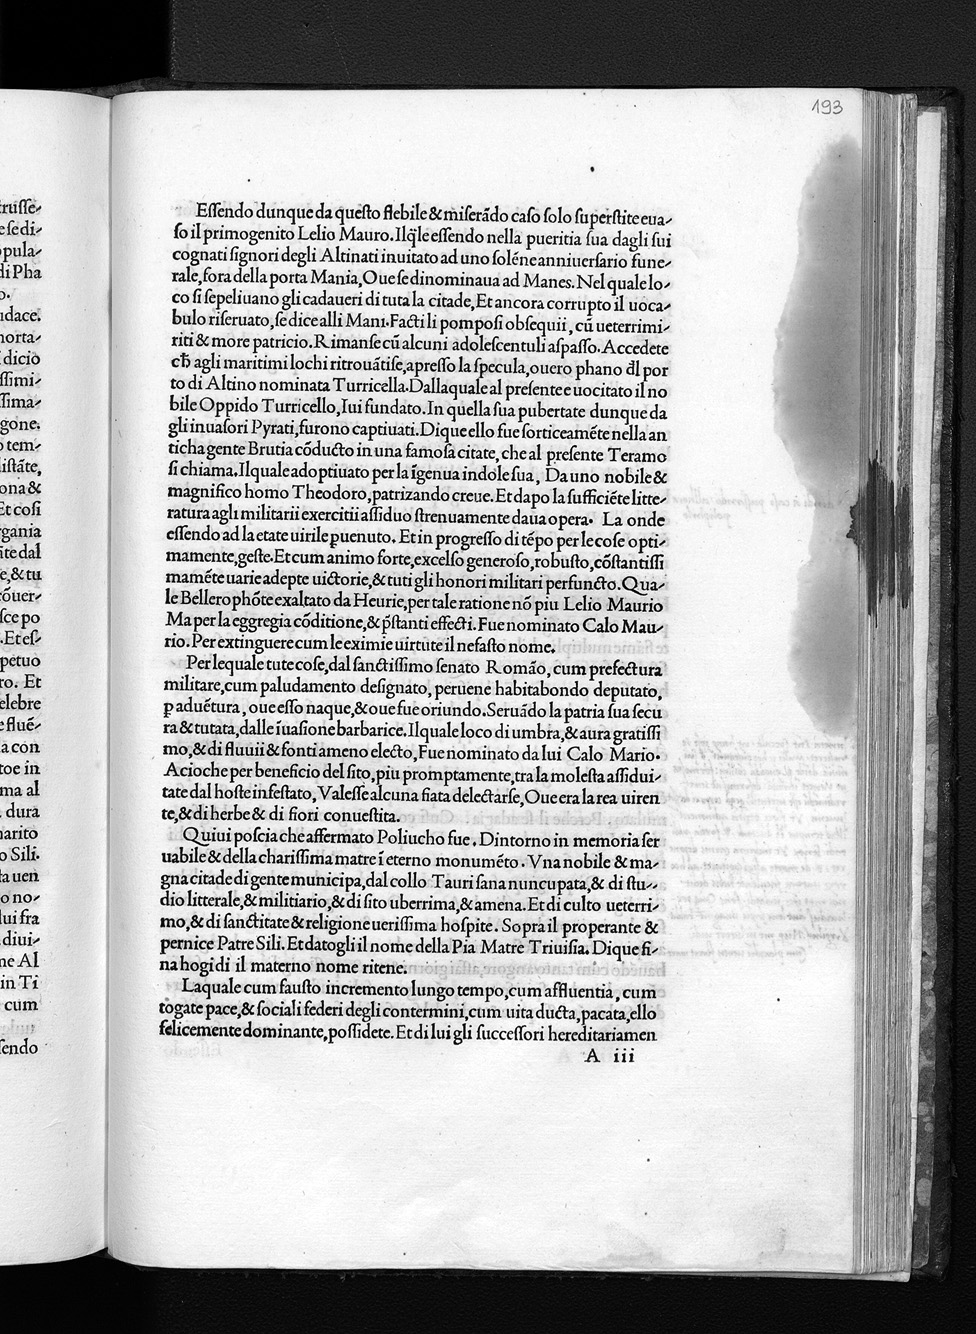 193
Eſſendo dunque da queſto flebile & miſerãdo caſo ſolo ſuperſtite eua-
ſo il primogenito Lelio Mauro. Ilq̃le eſſendo nella pueritia ſua dagli ſui
cognati ſignori degli Altinati inuitato ad uno ſoléne anniuerſario fune-
rale, fora della porta Mania, Oue ſe dinominaua ad Manes. Nel quale lo-
co ſi ſepeliuano gli cadaueri di tuta la citade, Et ancora corrupto il uoca-
bulo riſeruato, ſe dice alli Mani. Facti li pompoſi obſequii, cũ ueterrimi-
riti & more patricio. Rimanſe cũ alcuni adoleſcentuli aſpaſſo. Accedete
ch̃ agli maritimi lochi ritrouãtiſe, apreſſo la ſpecula, ouero phano đl por
to di Altino nominata Turricella. Dallaquale al preſente e uocitato il no
bile Oppido Turricello, Iui fundato. In quella ſua pubertate dunque da
gli inuaſori Pyrati, furono captiuati. Di que ello fue ſorticeaméte nella an
ticha gente Brutia códucto in una famoſa citate, che al preſente Teramo
ſi chiama. Ilquale adoptiuato per la ĩgenua indole ſua, Da uno nobile &
magnifico homo Theodoro, patrizando creue. Et dapo la ſufficiéte litte-
ratura agli militarii exercitii aſſiduo ſtrenuamente daua opera. La onde
eſſendo ad la etate uirile ꝑuenuto. Et in progreſſo di tépo per le coſe opti-
mamente, geſte. Et cum animo forte, excelſo generoſo, robuſto, cõſtantiſſi
maméte uarie adepte uictorie, & tuti gli honori militari perfuncto. Qua-
le Bellerophõte exaltato da Heurie, per tale ratione nõ piu Lelio Maurio
Ma per la eggregia cõditione, & p̃ſtanti effecti. Fue nominato Calo Mau-
rio. Per extinguere cum le eximie uirtute il nefaſto nome.
Per lequale tute coſe, dal ſanctiſſimo ſenato Romão, cum prefectura
militare, cum paludamento deſignato, peruene habitabondo deputato,
ꝑ aduétura, oue eſſo naque, & oue fue oriundo. Seruãdo la patria ſua ſecu
ra & tutata, dalle ĩuaſione barbarice. Ilquale loco di umbra, & aura gratiſſi
mo, & di fluuii & fonti ameno electo, Fue nominato da lui Calo Mario.
Acioche per beneficio del ſito, piu promptamente, tra la moleſta aſſidui-
tate dal hoſte infeſtato, Valeſſe alcuna fiata delectarſe, Oue era la rea uiren
te, & di herbe & di fiori conueſtita.
Quiui poſcia che affermato Poliucho fue. Dintorno in memoria ſer
uabile & della chariſſima matre ĩ eterno monuméto. Vna nobile & ma-
gna citade di gente municipa, dal collo Tauriſana nuncupata, & di ſtu-
dio litterale, & militiario, & di ſito uberrima, & amena. Et di culto ueterri-
mo, & di ſanctitate & religione ueriſſima hoſpite. Sopra il properante &
pernice Patre Sili. Et datogli il nome della Pia Matre Triuiſia. Di que fi-
na hogidi il materno nome ritene.
Laquale cum fauſto incremento lungo tempo, cum affluentia, cum
togate pace, & ſociali federi degli contermini, cum uita ducta, pacata, ello
felicemente dominante, poſſidete. Et di lui gli ſucceſſori hereditariamen
A iii